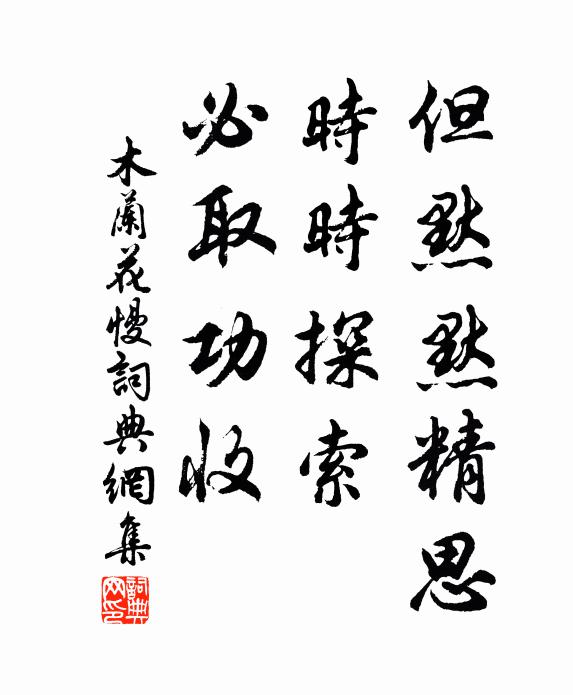 但默默精思
時時探索
必取功收
木蘭花慢詞典網集
詞典網印